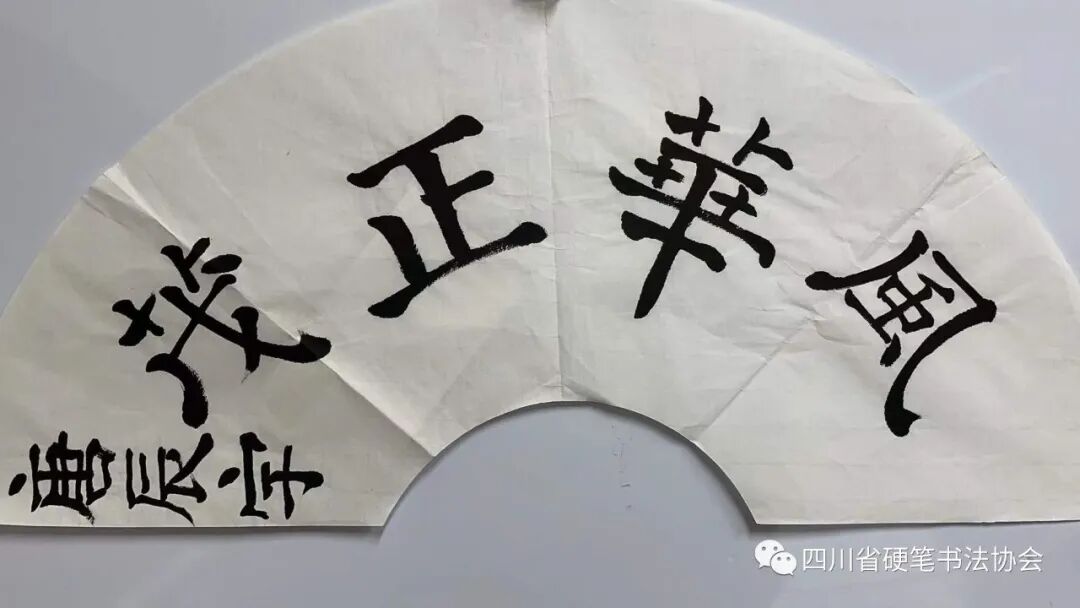 風華正茂
辰宇
四川省硬笔书法协会